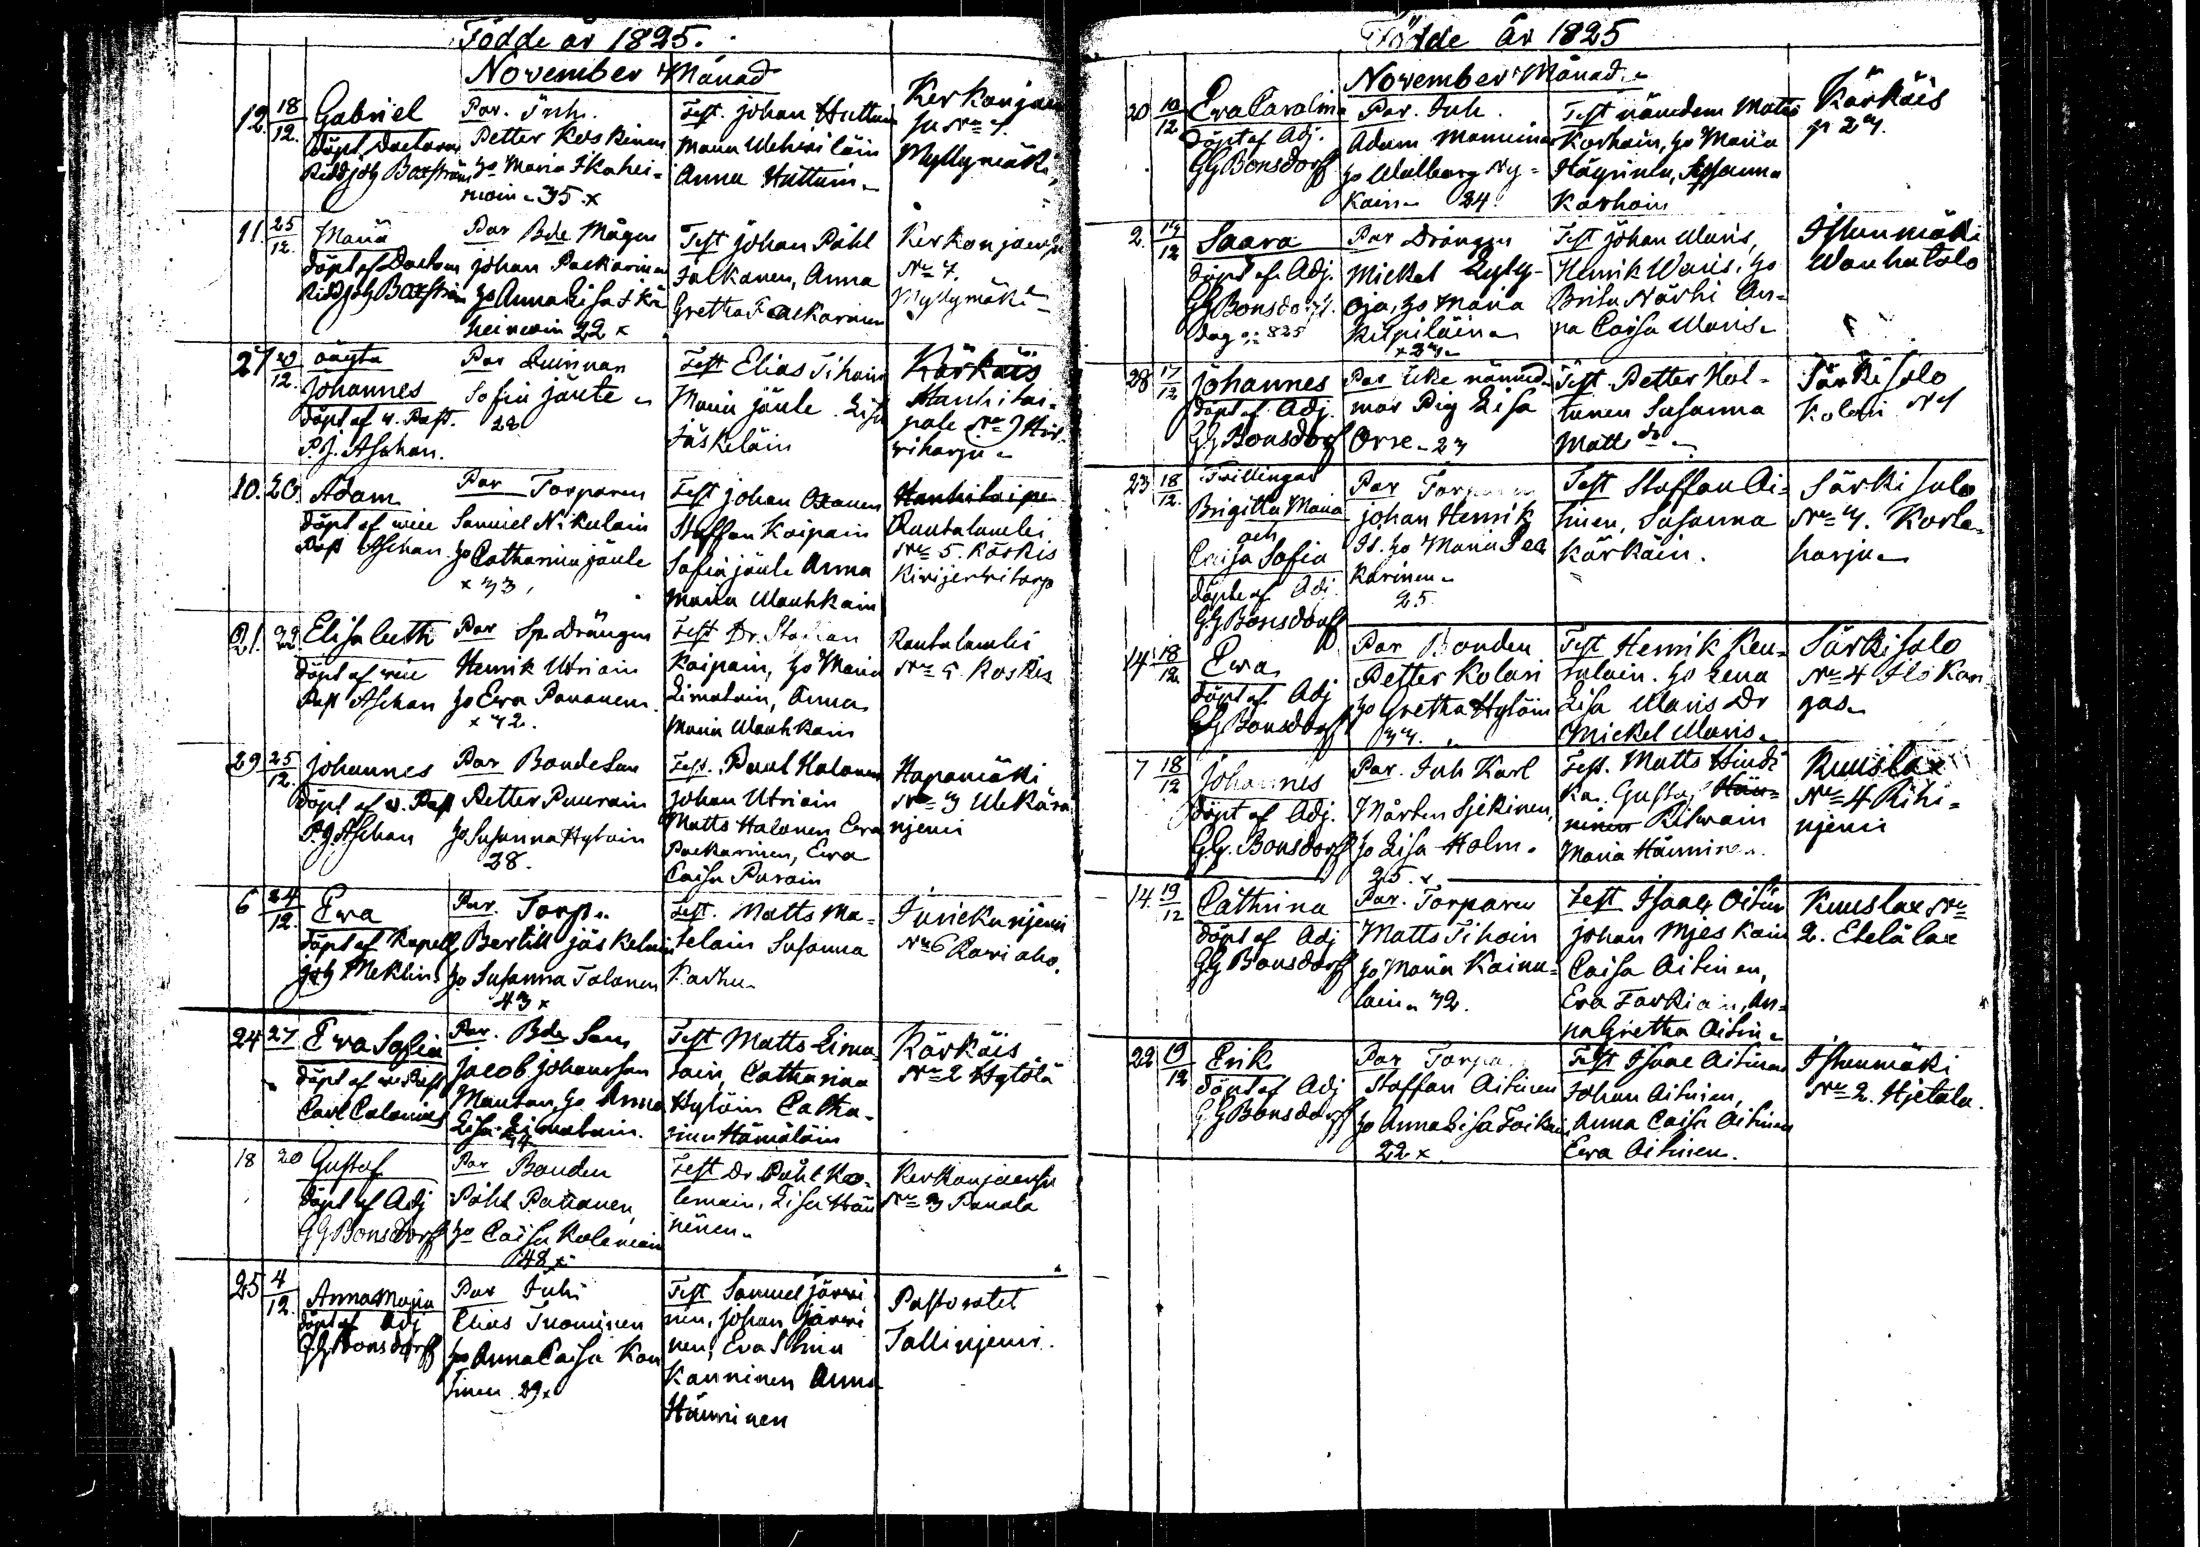 Födde år 1825.
November Månad
12 18/12. Gabriel
döpt Doctoren
Ridd Joh Boxström
Par. Inh.
Petter Koskinen
ho Maria Ikahei-
moin 35. x
Test. Johan Huttun
Maria Wehviläin
Anna Huttuin
Kerkonjoen
su No 7.
Myllymäki
11. 25/12. Maria
döpt af Doctoren
Ridd Joh Boxström
Par Bde Mågen
Johan Paekarinen
ho Anna Lisa Ika
heimoin 22 x
Test Johan Påhl
Jalkanen, Anna
Gretha Paekarinen
Kerkonjoensu
No 7.
Myllymäki
27 20/12. oägta
Johannes
döpt af v. Past.
P. J. Aschan.
Par Quinnan
Sofia Jäule
22
Test Elias Tihoin
Maria Jäule Lisa
Jäskeläin
Kärkäis
Hanhitai-
pale No 9 Hir-
viharju
10. 20. Adam
döpt af vice
Past Aschan.
Par Torparen
Samuel Nikulain
ho Catharina Jäule
x 33,
Test Johan Oxanen
Staffan Koipain
Sofia Jäule Anna
Maria Wauhkoin
Hanhitaipa
Rautalambi
No 5. Koskis
Kivijervi torp
21. 22. Elisabeth
döpt af vice
Past Aschan
Par Sp. Drängen
Henrik Utriain
ho Ewa Pananen.
x 42.
Test Dr. Staffan
Koipain, ho Maria
Limatain, Anna
Maria Wauhkoin
Rautalambi
No 5. Koskis
29 25/12. Johannes
döpt af v. Past
P. J. Aschan
Par Bondeson
Petter Puurain
ho Susanna Hytöin
28.
Test. Paul Halonen
Johan Utriain
Matts Halonen Ewa
Paekarinen, Ewa
Caisa Purain
Hapamäki
No 3 Wekara
njemi
6 24/12. Ewa
döpt af Kapell
Joh Meklin
Par. Torp.
Bertill Jäskeläin
ho Susanna Tolonen
43 x
Test. Matts Ma-
telain Susanna
Karhu
Junickanjemi
No 6 Rasi aho.
24 27 Ewa Sofia
döpt af v. Past
Carl Calonius
Par. Bde Son
Jacob Johansson
Mantan, ho Anna
Lisa Limatain.
44
Test Matts Lima-
tain, Catharina
Hytöin Catha-
rina Hämäläin
Kärkäis
No 2 Hytölä
18 20 Gustaf
döpt af Adj
G G Bonsdorff
Par Bonden
Påhl Pananen,
ho Caisa Kolemain
48 x
Test Dr Påhl Ko-
lemain, Lisa Hän
ninen
Kerkonjoensu
No 3 Panala
25 4/12. Anna Maria
döpt af Adj
G. G. Bonsdorff
Par Inh:
Elias Tuominen
ho Anna Caisa Kan
ninen 29 x
Test Samuel Järvi
nen, Johan Järvi
nen, Eva Stina
Kanninen Anna
Hänninen
Pastoratet
Tallinjemi.
Födde År 1825
November Månad
20 10/12 Eva Carolina
Döpt af Adj.
G G Bonsdorff
Par. Inh.
Adam Manninen
ho Walborg Ny-
käin 24.
Test nämdem Matts
Korhoin, ho Maria
Häyrinen, Susanna
Korhoin
Kärkäis
No 27.
2. 14/12 Saara
döpt af Adj.
G G Bonsdorff.
Dag 825
Par Drängen
Mickel Lyly-
oja, ho Maria
Kilpiläin
x 27
Test Johan Waris,
Henrik Waris, ho
Brita Närhi An-
na Caisa Waris
Istunmäki
Wanhatalo
28 17/12 Johannes
döpt af Adj.
G G Bonsdorff
Par icke nämnd
mor Pig Lisa
Orre 23
Test. Petter Hol-
tunen Susanna
Matts dr
Särkisalo
Kolari No 1
23 18/12. Twillingar
Brigitta Maria
och
Caisa Sofia
döpte af Adj.
G G Bonsdorff
Par Torparen
Johan Henrik
Is. ho Maria Pae
karinen
25.
Test Staffan Ai-
tinen, Susanna
Kärkäin.
Särkisalo
No 7. Korla-
harju
14 18/12. Ewa
döpt af Adj
G G Bonsdorff
Par Bonden
Petter Kolari
ho Gretha Hytöin
37.
Test Henrik Ken-
ralain. ho Lena
Lisa Waris Dr
Mickel Waris
Särkisalo
No 4 Ilokan
gas
7 18/12 Johannes
döpt af Adj.
G. G. Bonsdorff
Par. Inh Karl
Mårten Sjekinen,
ho Lisa Holm.
25. x
Test. Matts Hindi
ka. Gustaf Hän-
ninen Ritwain
Maria Hänninen.
Kuuslax
No 4 Rihi-
njemi
14. 19/12 Cathrina
döpt af Adj
G G Bonsdorff
Par. Torparen
Matts Tihoin
ho Maria Kainu-
lain 32.
Test Isaac Oitin
Johan Mjeskain
Caisa Oitinen,
Eva Tarkiain, An-
na Gretha Oitin
Kuuslax No
2. Etelälax
22 19/12 Erik
döpt af Adj
G G Bonsdorff
Par Torpa
Staffan Oitinen
ho Anna Lisa Toikan
22 x
Test Isaac Oitinen
Johan Oitinen,
Anna Caisa Oitinen
Ewa Oitinen.
Istunmäki
No 2. Hjetala.